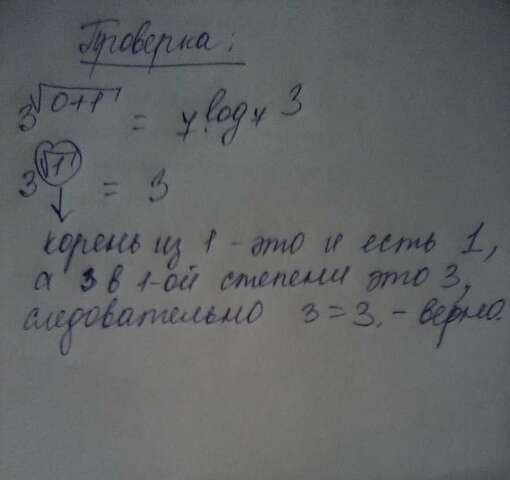 Проверка:
3^√(0+1) = 7^log₇3
3^√1 = 3
корень из 1 - это и есть 1,
а 3 в 1-ой степени это 3,
следовательно 3=3. - верно.